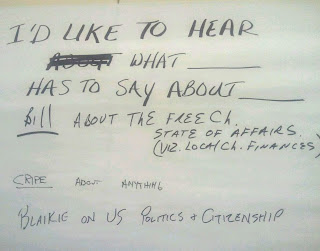 I'D LIKE TO HEAR
WHAT ______
HAS TO SAY ABOUT ______
Bill ABOUT THE FREE Ch.
STATE OF AFFAIRS.
(VIZ. LOCAL Ch. FINANCES)
CRIPE ABOUT ANYTHING
BLAIKIE ON US POLITICS + CITIZENSHIP